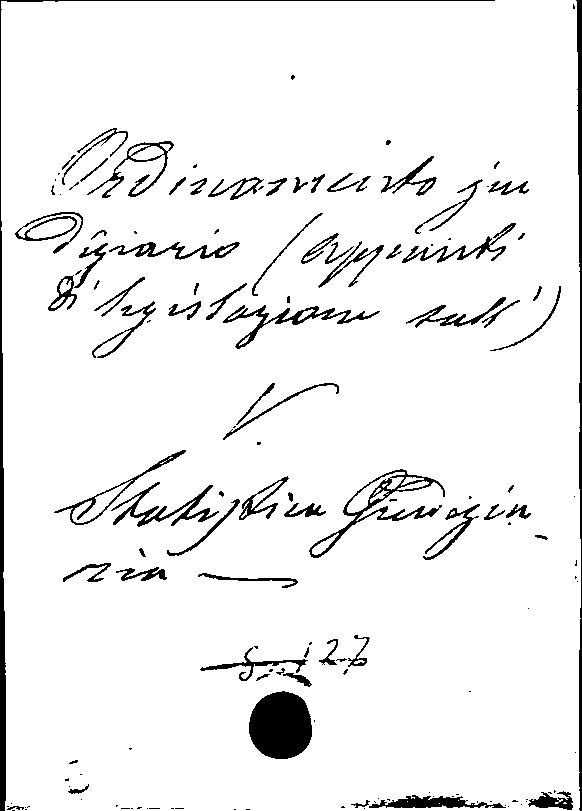 Ordinamento giu
diziario (appunti
di legislazione sull')
V.
Statistica Giudizia-
ria —
127